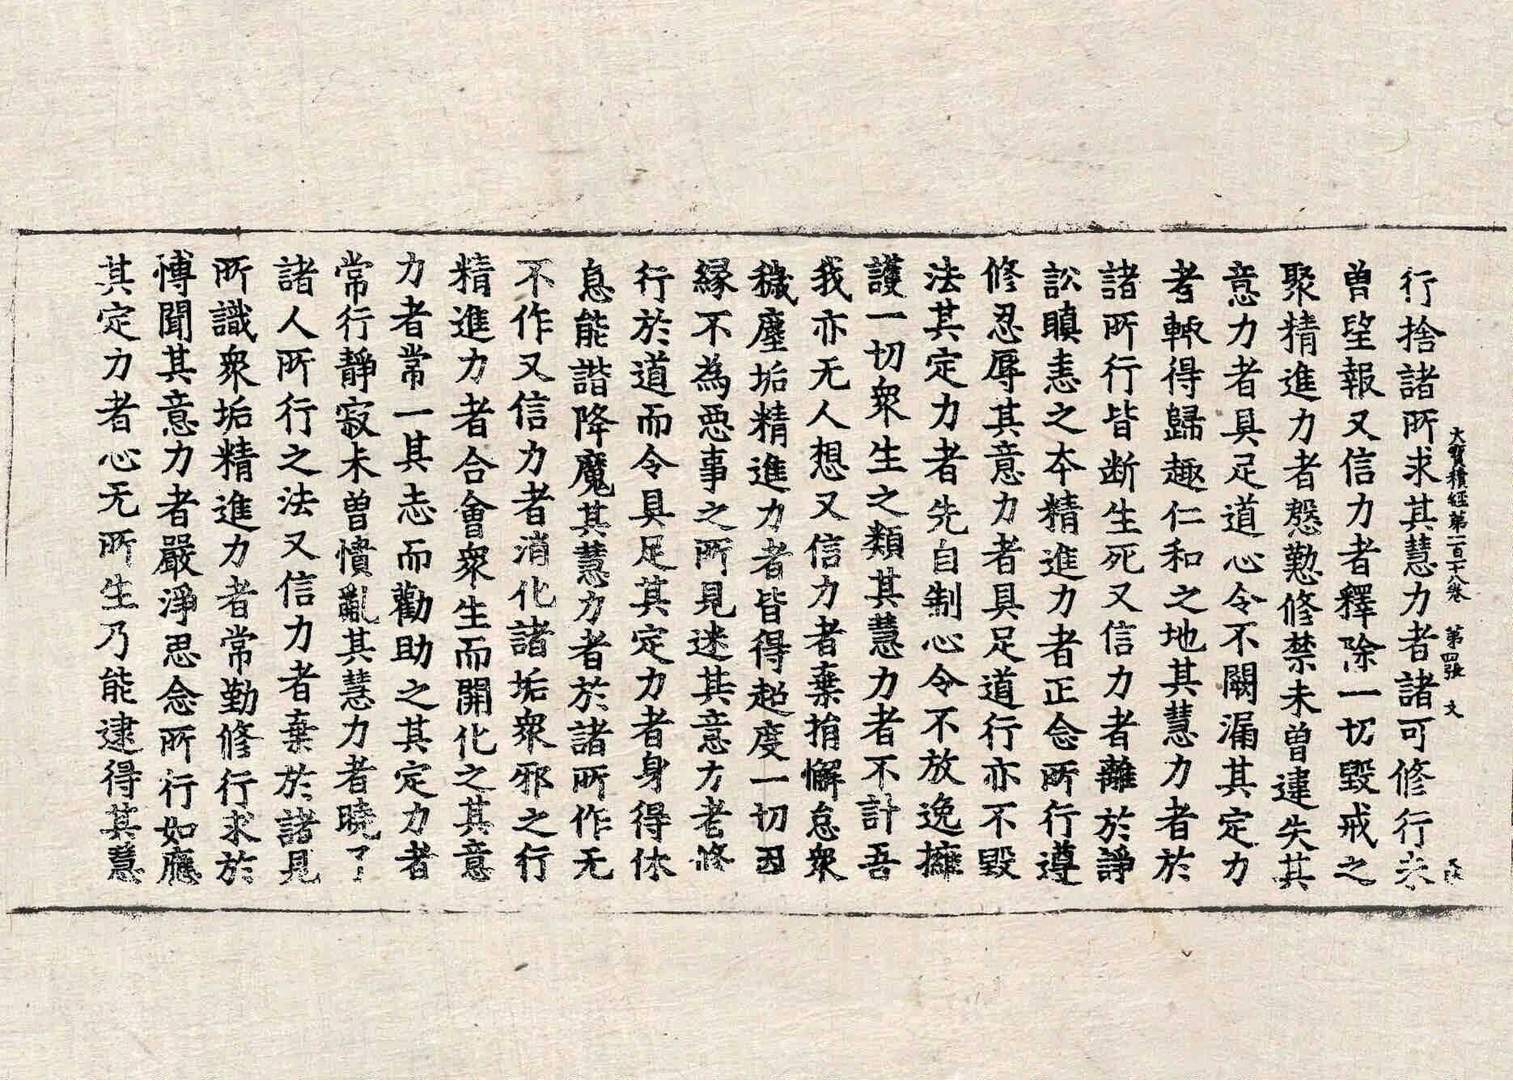 大寶積經第一百十八卷 第四張 文
行捨諸所求其慧力者諸可修行未
曽望報又信力者釋除一切毀戒之
聚精進力者慇懃修禁未曽違失其
意力者具足道心令不闕漏其定力
者輙得歸趣仁和之地其慧力者於
諸所行皆断生死又信力者離於諍
訟瞋恚之本精進力者正念所行遵
修忍辱其意力者具足道行亦不毀
法其定力者先自制心令不放逸擁
護一切衆生之類其慧力者不計吾
我亦无人想又信力者棄捐懈怠衆
穢塵垢精進力者皆得超度一切因
緣不為惡事之所見迷其意力者修
行於道而令具足其定力者身得休
息能諧降魔其慧力者於諸所作无
不作又信力者消化諸垢衆邪之行
精進力者合會衆生而開化之其意
力者常一其志而勸助之其定力者
常行靜寂未曽憒亂其慧力者曉了
諸人所行之法又信力者棄於諸見
所識衆垢精進力者常勤修行求於
博聞其意力者嚴淨思念所行如應
其定力者心无所生乃能逮得其慧